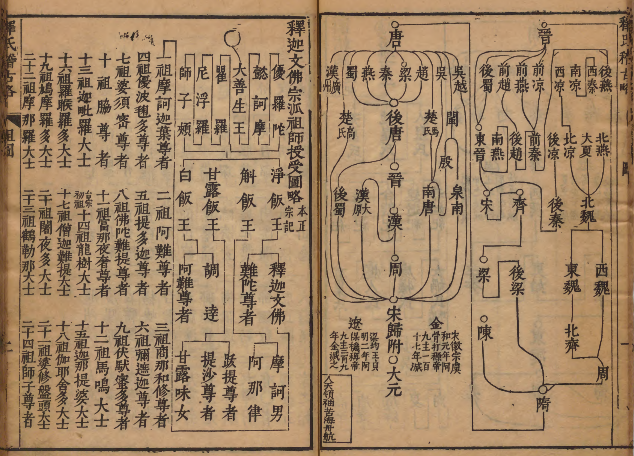 釋氏稽古略
晉
後燕
西秦
南涼
西涼
前涼
前燕
前趙
後蜀
北燕
大夏
北涼
後涼
前秦
後趙
南燕
東晉
北魏
後秦
齊
宋
西魏
東魏
後梁
梁
北齊
陳
周
隋
唐
吳越
吳
趙
梁
秦
燕
蜀
南漢廣州
閩
殷
楚馬氏
後唐
楚高氏
泉南
南唐
晉
漢太原
後蜀
漢
周
宋歸附
大元
金
遼
釋迦文佛宗派祖師授受圖略
優羅陀
懿訶摩
大善生王
瞿羅
尼浮羅
師子頰
淨飯王
斛飯王
甘露飯王
白飯王
釋迦文佛
難陀尊者
調達
阿難尊者
摩訶男
阿那律
跋提尊者
提沙尊者
甘露味女
一祖摩訶迦葉尊者
二祖阿難尊者
三祖商那和修尊者
四祖優波毱多尊者
五祖提多迦尊者
六祖彌遮迦尊者
七祖婆須密尊者
八祖佛陀難提尊者
九祖伏馱蜜多尊者
十祖脇尊者
十一祖富那夜奢尊者
十二祖馬鳴大士
十三祖迦毗羅大士
十四祖龍樹大士
十五祖迦那提婆大士
十六祖羅睺羅多大士
十七祖僧迦難提大士
十八祖伽耶舍多大士
十九祖鳩摩羅多大士
二十祖闍夜多大士
二十一祖婆修盤頭大士
二十二祖摩那羅大士
二十三祖鶴勒那大士
二十四祖師子尊者
釋氏稽古略
祖圖